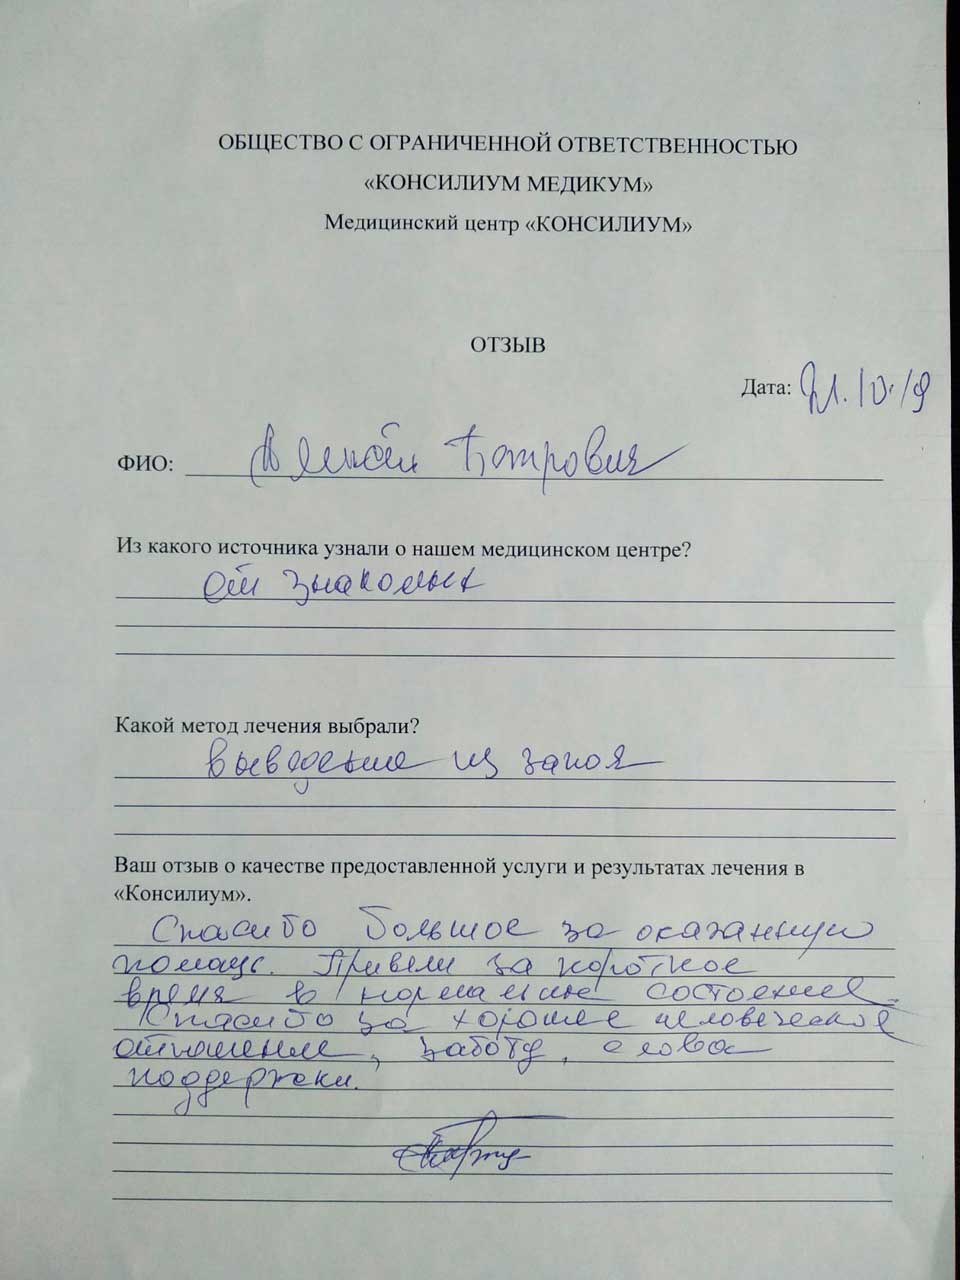 ОБЩЕСТВО С ОГРАНИЧЕННОЙ ОТВЕТСТВЕННОСТЬЮ
«КОНСИЛИУМ МЕДИКУМ»
Медицинский центр «КОНСИЛИУМ»
ОТЗЫВ
Дата: 21.10.19
ФИО: Петрович
Из какого источника узнали о нашем медицинском центре?
от знакомых
Какой метод лечения выбрали?
выведение из запоя
Ваш отзыв о качестве предоставленной услуги и результатах лечения в
«Консилиум».
Спасибо большое за оказанную
помощь. Привели за короткое
время в нормальное состояние.
Спасибо за хорошее человеческое
отношение, заботу, слова
поддержки.